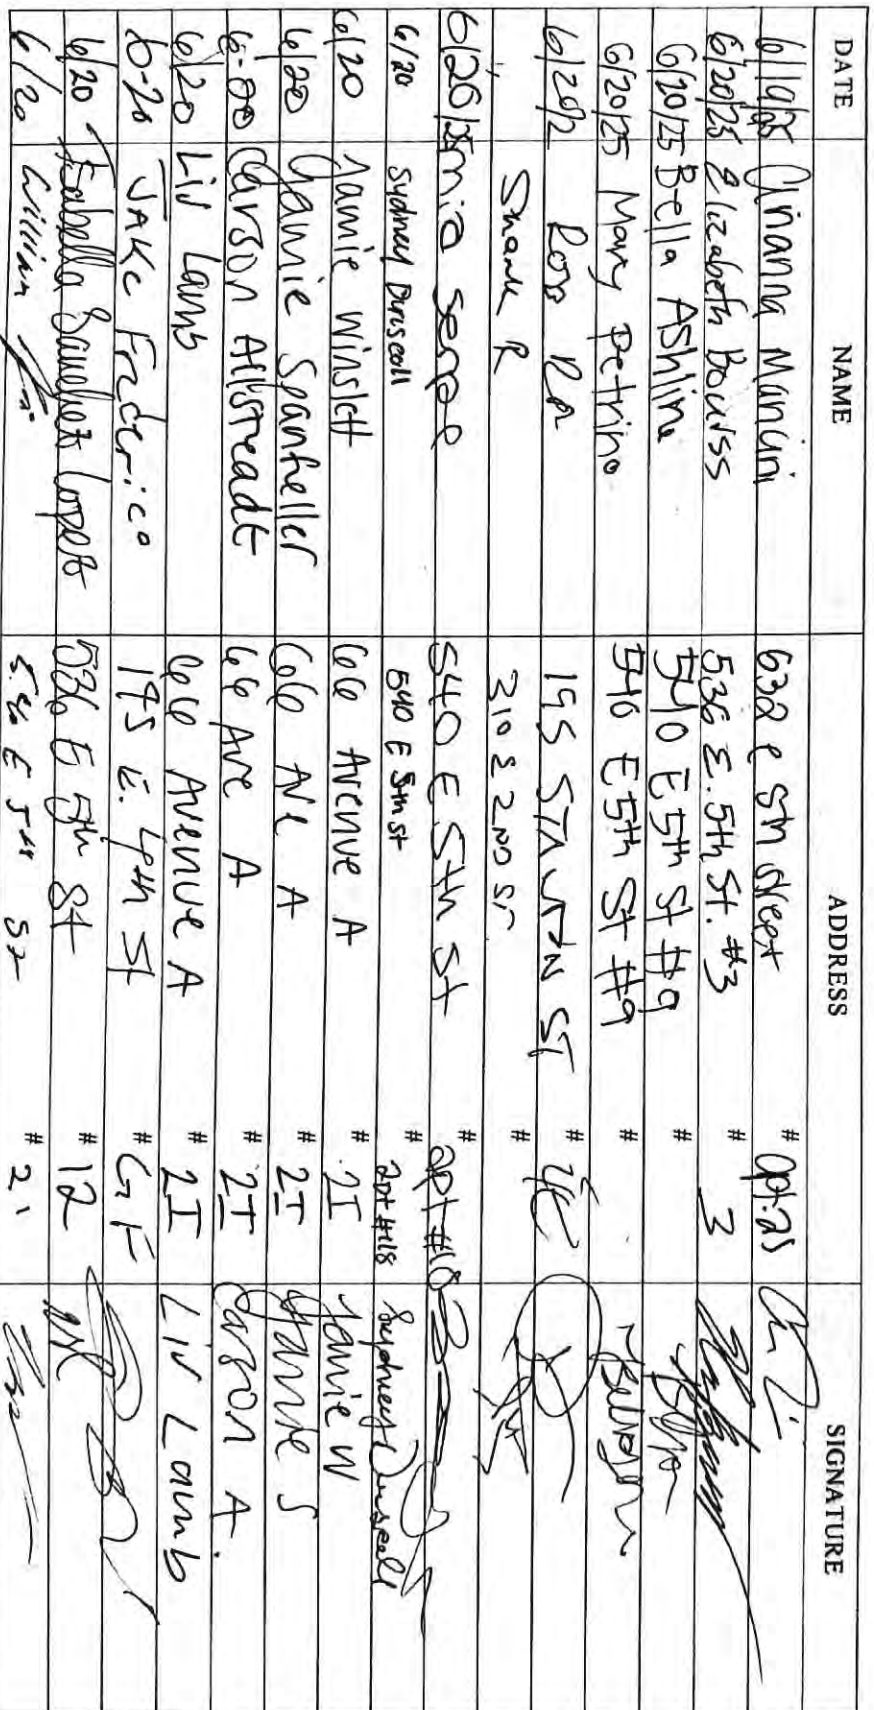 DATE NAME ADDRESS SIGNATURE
Arianna Mancini 632 e 5th street # apt. 2S
6/20/25 Elizabeth Bourss 536 E. 5th St. #3 # 3
6/20/25 Bella Ashline 540 E 5th St #9 #
6/20/25 Mary Petrino 540 E 5th St #9 #
6/20/2 195 STANTON ST # 4C
R 310 E 2ND ST #
6/20/25 mia serpe 540 E 5th St # apt #18
6/20 Sydney Driscoll 540 E 5th st # apt #18 Sydney Driscoll
6/20 Jamie Winslett 66 Avenue A # 2I Jamie W
6/20 Jamie Spanheller 66 Ave A # 2I Jamie S
6-20 Carson Allstreadt 66 Ave A # 2I Carson A.
6/20 Liv Lamb 66 Avenue A # 2I LIV Lamb
6-20 JAKE Frederico 195 E. 4th St # GF
6/20 Isabella Sanchez Lopez 536 E 5th St # 12
6/20 William E 5th St # 2